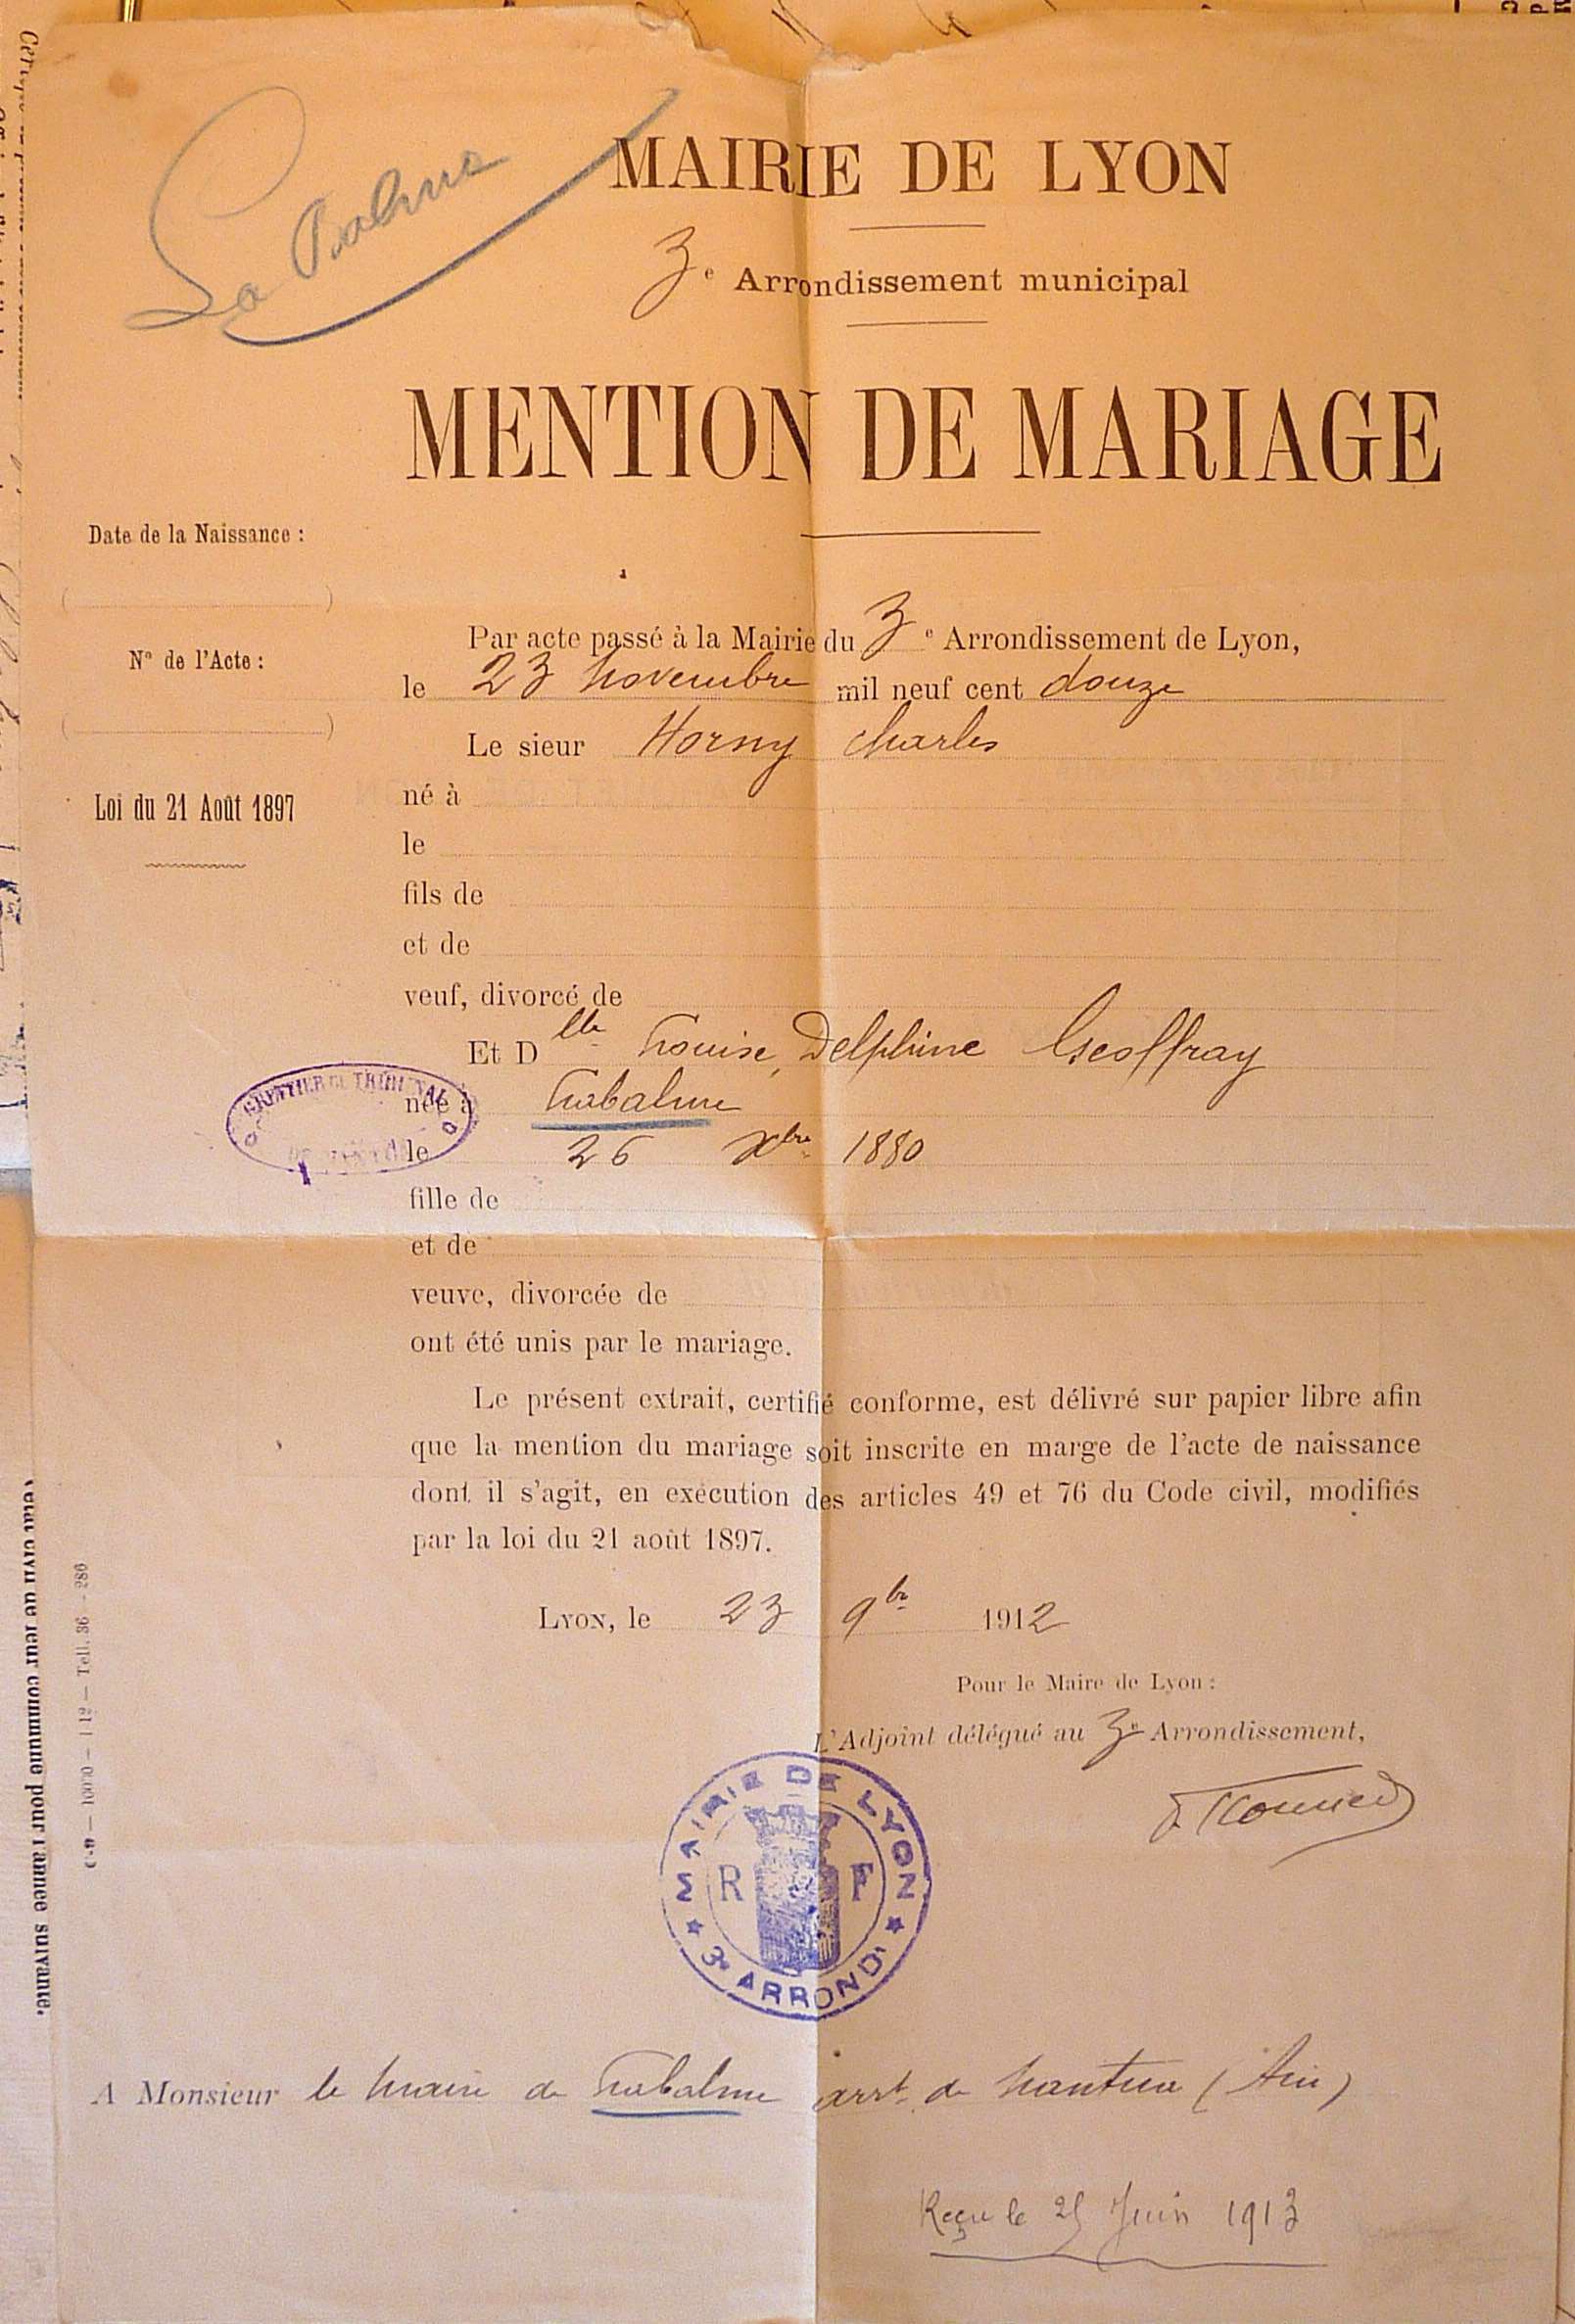 La Balme
MAIRIE DE LYON
3e Arrondissement municipal
MENTION DE MARIAGE
Date de la Naissance :
( )
No de l'Acte :
( )
Loi du 21 Août 1897
Par acte passé à la Mairie du 3 e Arrondissement de Lyon,
le 23 Novembre mil neuf cent douze
Le sieur Horny Charles
né à
le
fils de
et de
veuf, divorcé de
Et Dlle Louise, Delphine Geoffray
née à Labalme
le 26 Xbre 1880
fille de
et de
veuve, divorcée de
ont été unis par le mariage.
Le présent extrait, certifié conforme, est délivré sur papier libre afin
que la mention du mariage soit inscrite en marge de l'acte de naissance
dont il s'agit, en exécution des articles 49 et 76 du Code civil, modifiés
par la loi du 21 août 1897.
Lyon, le 23 9br 1912
Pour le Maire de Lyon :
L'Adjoint délégué au 3e Arrondissement,
MAIRIE DE LYON
R F
3e ARRONDt
A Monsieur le Maire de Labalme arrt de Nantua (Ain)
Reçu le 25 Juin 1913
GREFFIER DU TRIBUNAL
l'état civil de leur commune pour l'année suivante.